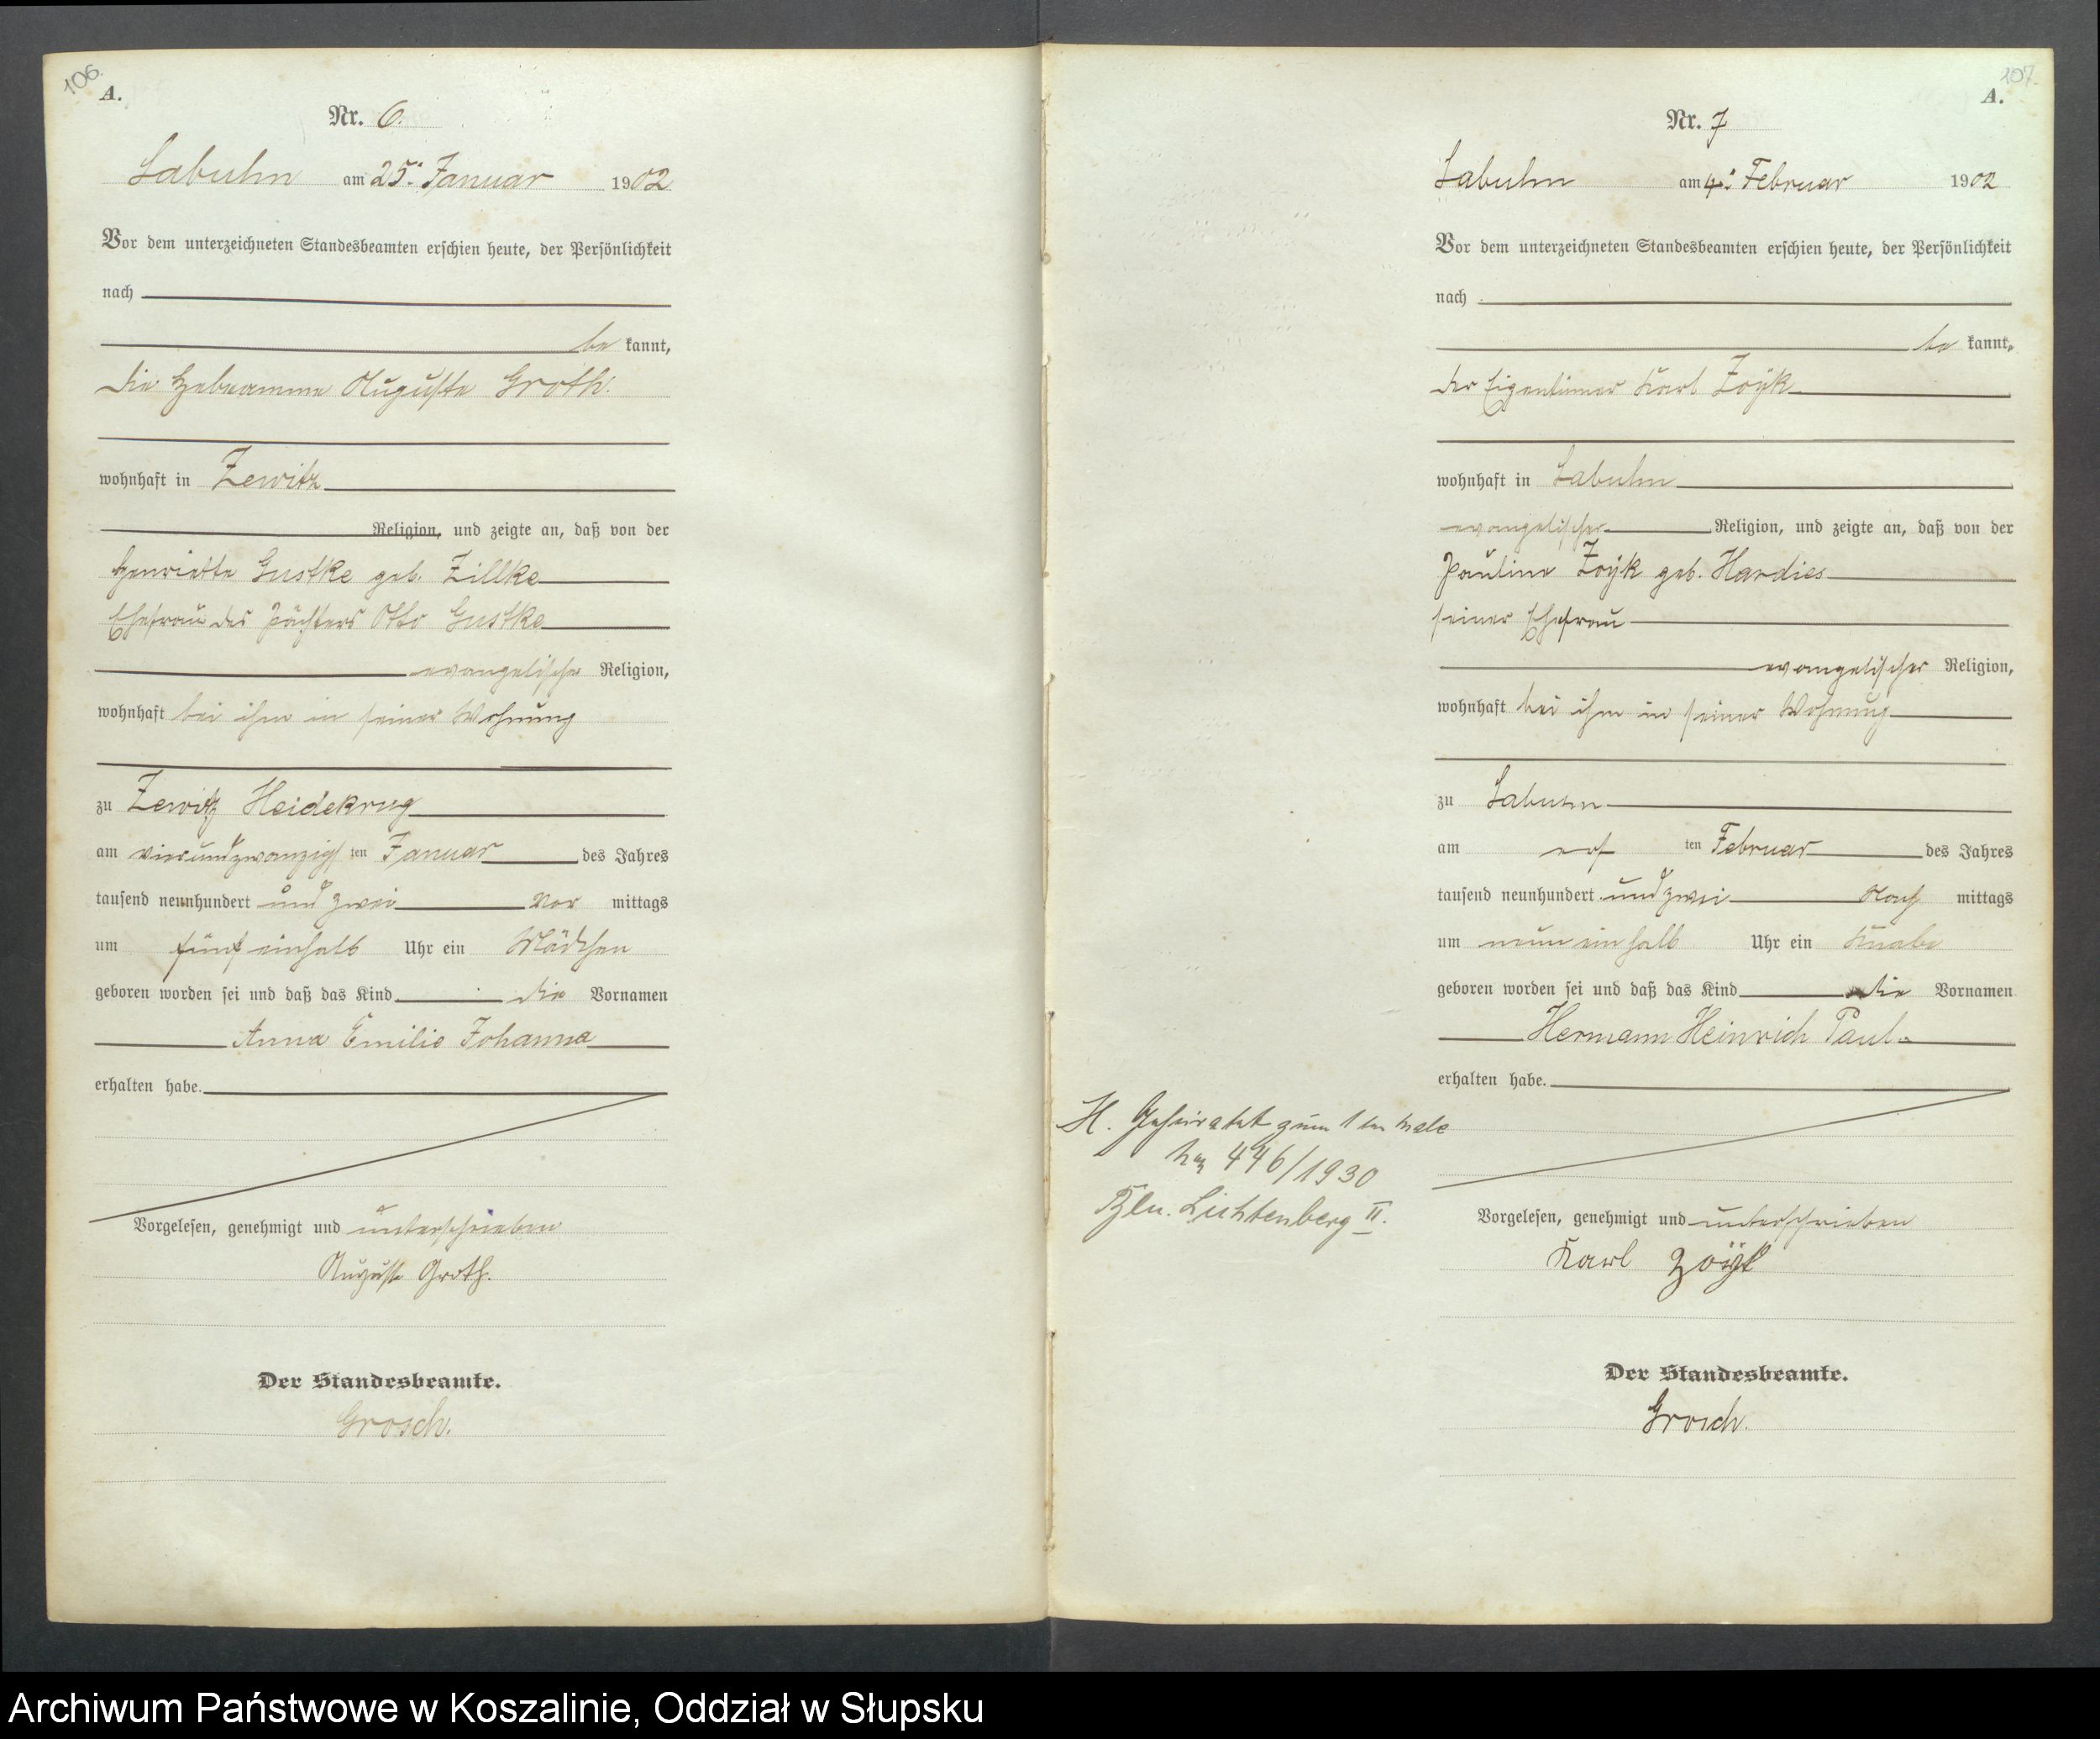 106.
A.
Nr. 6.
Labuhn am 25. Januar 1902
Vor dem unterzeichneten Standesbeamten erschien heute, der Persönlichkeit
nach
be kannt,
die Hebeamme Auguste Groth.
wohnhaft in Zewitz
Religion, und zeigte an, daß von der
Henriette Gustke geb. Zillke
Ehefrau des Pächters Otto Gustke
evangelischer Religion,
wohnhaft bei ihm in seiner Wohnung
zu Zewitz Heidekrug
am vierundzwanzigsten Januar des Jahres
tausend neunhundert und zwei Vor mittags
um fünf einhalb Uhr ein Mädchen
geboren worden sei und daß das Kind die Vornamen
Anna Emilie Johanna
erhalten habe.
Vorgelesen, genehmigt und unterschrieben
Auguste Groth.
Der Standesbeamte.
Grosch.
107.
A.
Nr. 7
Labuhn am 4. Februar 1902
Vor dem unterzeichneten Standesbeamten erschien heute, der Persönlichkeit
nach
be kannt,
der Eigentümer Karl Zoÿk
wohnhaft in Labuhn
evangelischer Religion, und zeigte an, daß von der
Pauline Zoÿk geb. Hardies
seiner Ehefrau
evangelischer Religion,
wohnhaft bei ihm in seiner Wohnung
zu Labuhn
am ersten Februar des Jahres
tausend neunhundert und zwei Nach mittags
um neun einhalb Uhr ein Knabe
geboren worden sei und daß das Kind die Vornamen
Hermann Heinrich Paul
erhalten habe.
H. Geheiratet zum 1ten Male
446/1930
Bln. Lichtenberg II.
Vorgelesen, genehmigt und unterschrieben
Karl Zoÿk
Der Standesbeamte.
Grosch.
Archiwum Państwowe w Koszalinie, Oddział w Słupsku